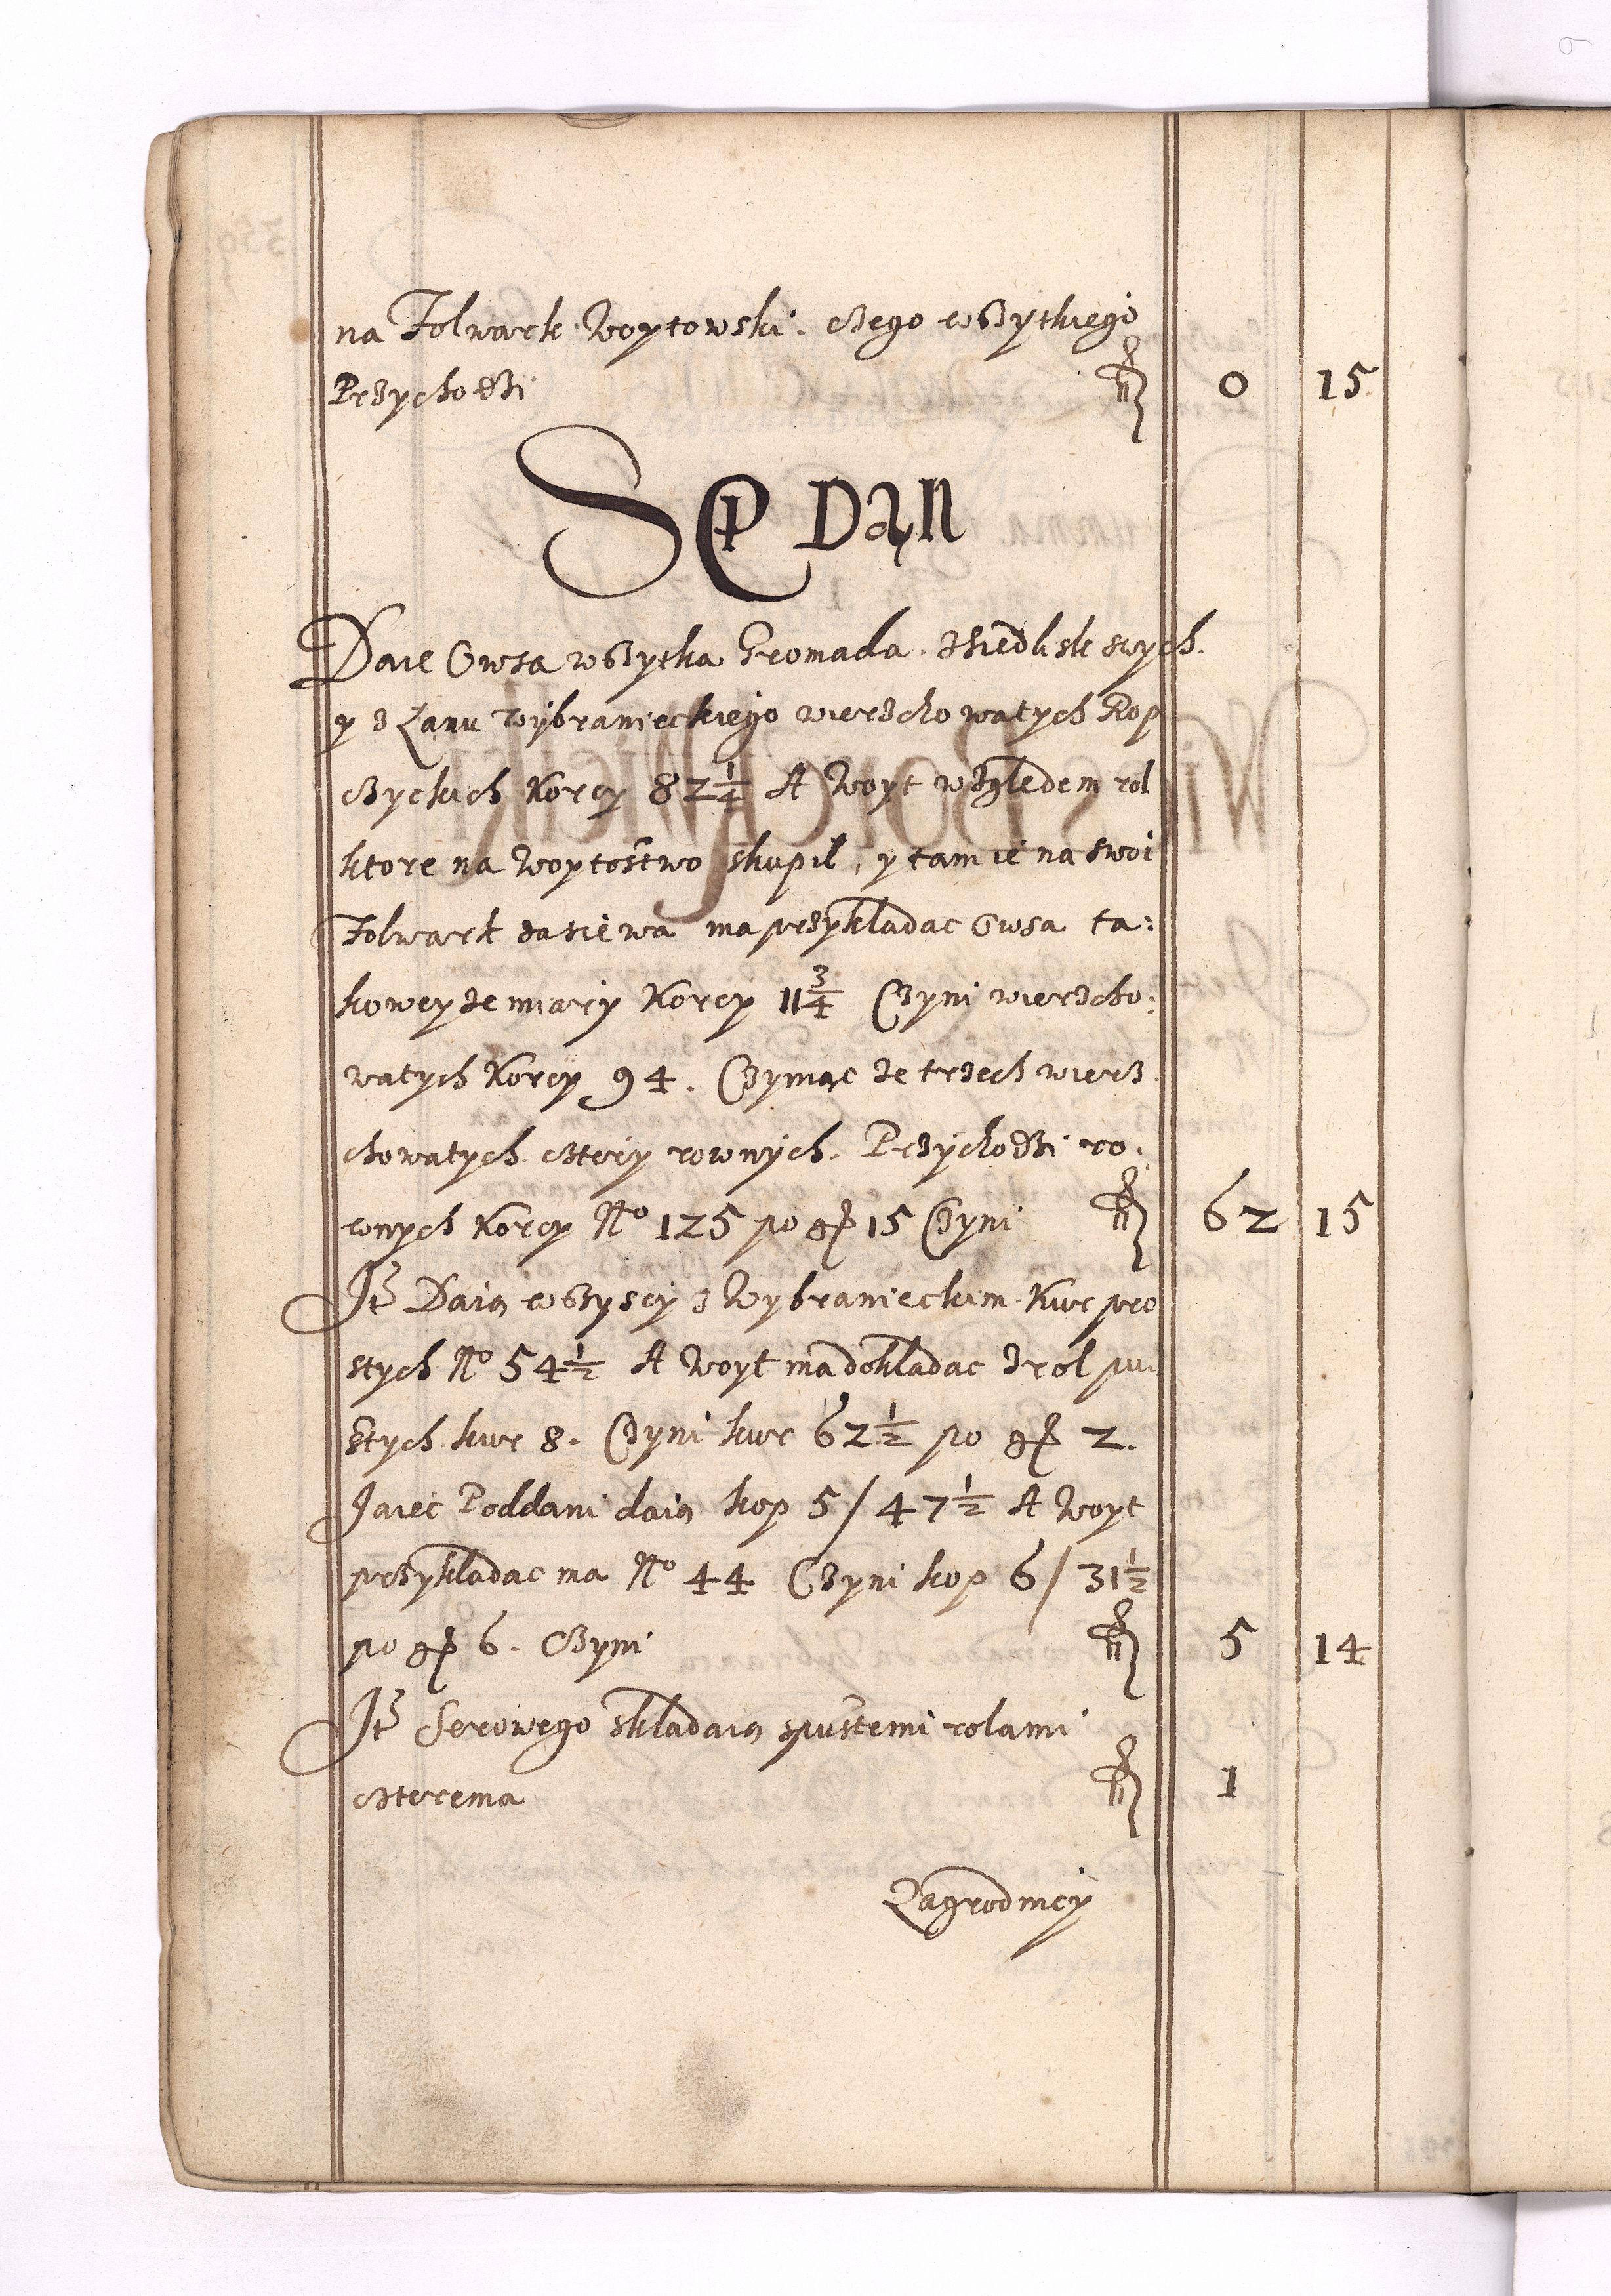 na Folwark Woytowski. czego wszytkiego
Przychodzi fl 0 15
SęP Dąn
Daie Owsa wszytka Gromada. zsiedlisk swych.
y z Łanu wybranieckiego wierzchowatych Kop
czyckich Korcy 82 1/4 A Woyt względem rol
ktore na Woytostwo skupil, y tam ie na swoi
Folwark zasiewa ma przykladac Owsa ta:
kowey ze miary Korcy 11 3/4 Czyni wierzcho:
watych Korcy 94. Czyniąc ze trzech wierz
chowatych cztery rownych. Przychodzi ro.
wnych Korcy No 125 po gr 15 Czyni fl 62 15
Jt Daią wszyscy z Wybranieckim Kur pro
stych No 54 1/2 A Woyt ma dokladac z rol pu
stych kur 8. Czyni kur 62 1/2 po gr 2.
Jaiec Poddani daią kop 5/47 1/2 A Woyt
przykladac ma No 44 Czyni kop 6/31 1/2
po gr 6. Czyni fl 5 14
Jt Serowego skladaią spustemi rolami
czterema fl 1
Zagrodnicy